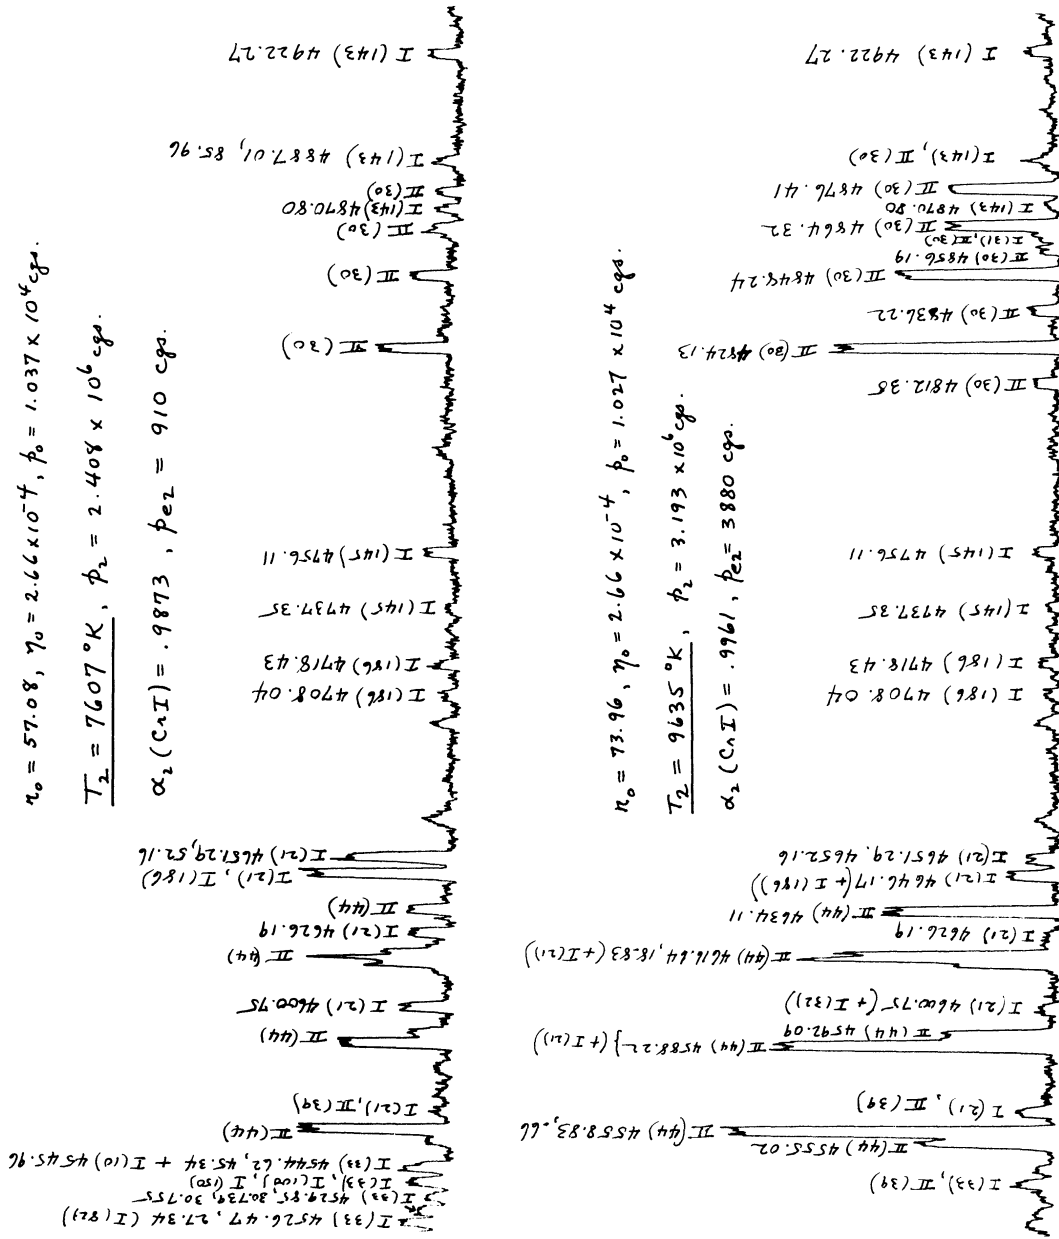 n₀ = 57.08, η₀ = 2.66 x 10⁻⁴, p₀ = 1.037 x 10⁴ cgs.
T₂ = 7607 °K, p₂ = 2.408 x 10⁶ cgs.
α₂ (Cr I) = .9873, pe₂ = 910 cgs.
I (143) 4922.27
I (143) 4887.01, 85.96
II (30)
I (143) 4870.80
II (30)
II (30)
II (30)
I (145) 4756.11
I (145) 4737.35
I (186) 4718.43
I (186) 4708.04
I (21) 4651.29, 52.16
I (21), I (186)
II (44)
I (21) 4626.19
II (44)
I (21) 4600.75
II (44)
I (21), II (39)
II (44)
I (33) 4544.62, 45.34 + I (10) 4545.96
I (33), I (100), I (150)
I (33) 4529.85, 30.739, 30.755
I (33) 4526.47, 27.34 (I (82))
n₀ = 73.96, η₀ = 2.66 x 10⁻⁴, p₀ = 1.027 x 10⁴ cgs.
T₂ = 9635 °K, p₂ = 3.193 x 10⁶ cgs.
α₂ (Cr I) = .9961, pe₂ = 3880 cgs.
I (143) 4922.27
I (143), II (30)
II (30) 4876.41
I (143) 4870.80
II (30) 4864.32
I (31), II (30)
II (30) 4856.19
II (30) 4848.24
II (30) 4836.22
II (30) 4824.13
II (30) 4812.35
I (145) 4756.11
I (145) 4737.35
I (186) 4718.43
I (186) 4708.04
I (21) 4651.29, 4652.16
I (21) 4646.17 (+ I (186))
II (44) 4634.11
I (21) 4626.19
II (44) 4616.64, 18.83 (+ I (21))
I (21) 4600.75 (+ I (32))
II (44) 4592.09
II (44) 4588.22 } (+ I (21))
I (21), II (39)
II (44) 4558.83, .66
II (44) 4555.02
I (33), II (39)